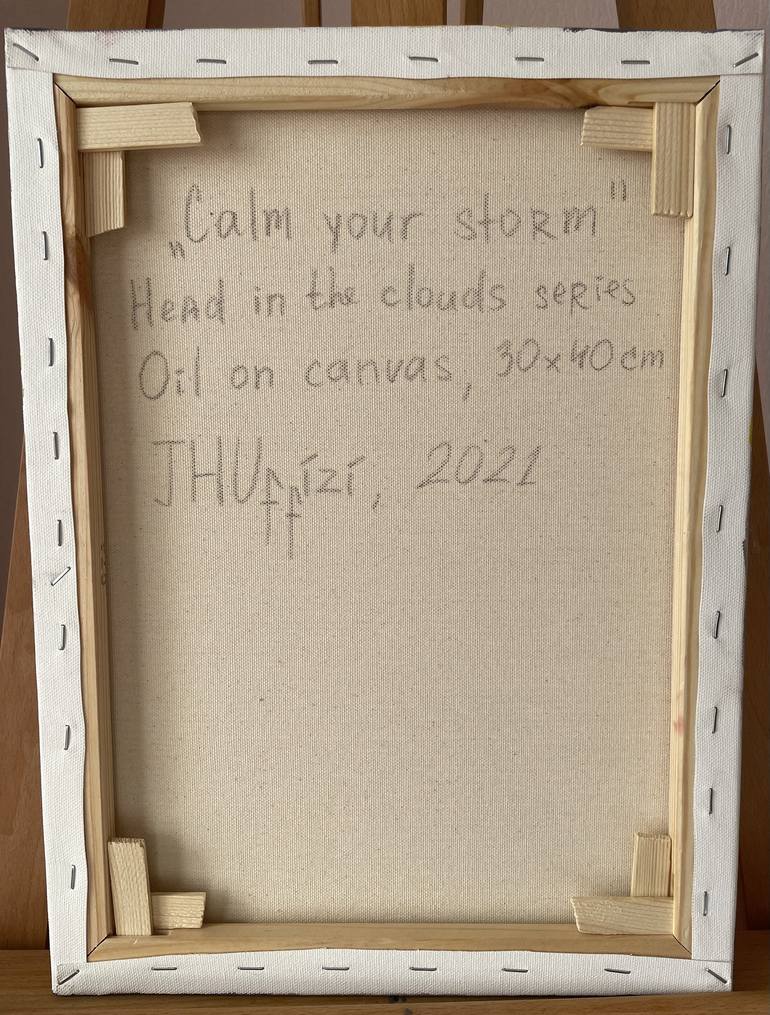 „Calm your storm"
Head in the clouds series
Oil on canvas, 30x40cm
JHUffízí, 2021